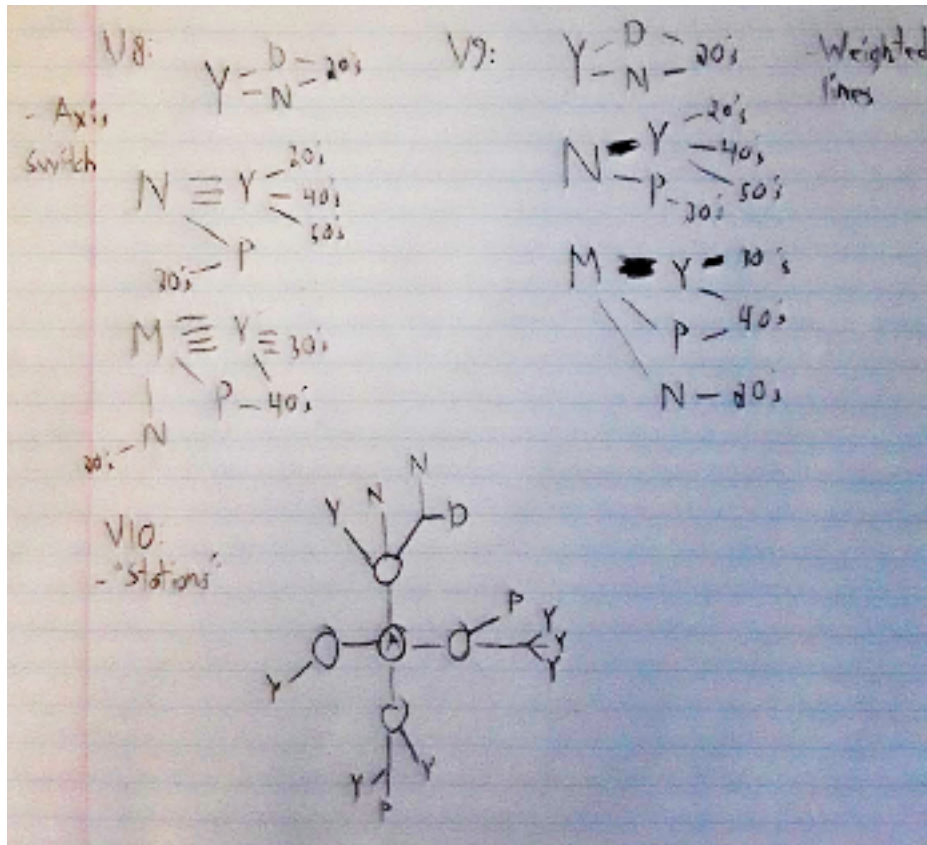 V8:
- Axis
Switch
Y D 20's
N
N Y 20's
40's
50's
P
30's
M Y 30's
P 40's
N
20's
V9:
- Weighted
lines
Y D 20's
N
N Y 20's
40's
50's
P 30's
M Y 30's
P 40's
N 20's
V10:
- "Stations"
N
N
Y D
P
A Y
Y
Y
Y
Y Y
P